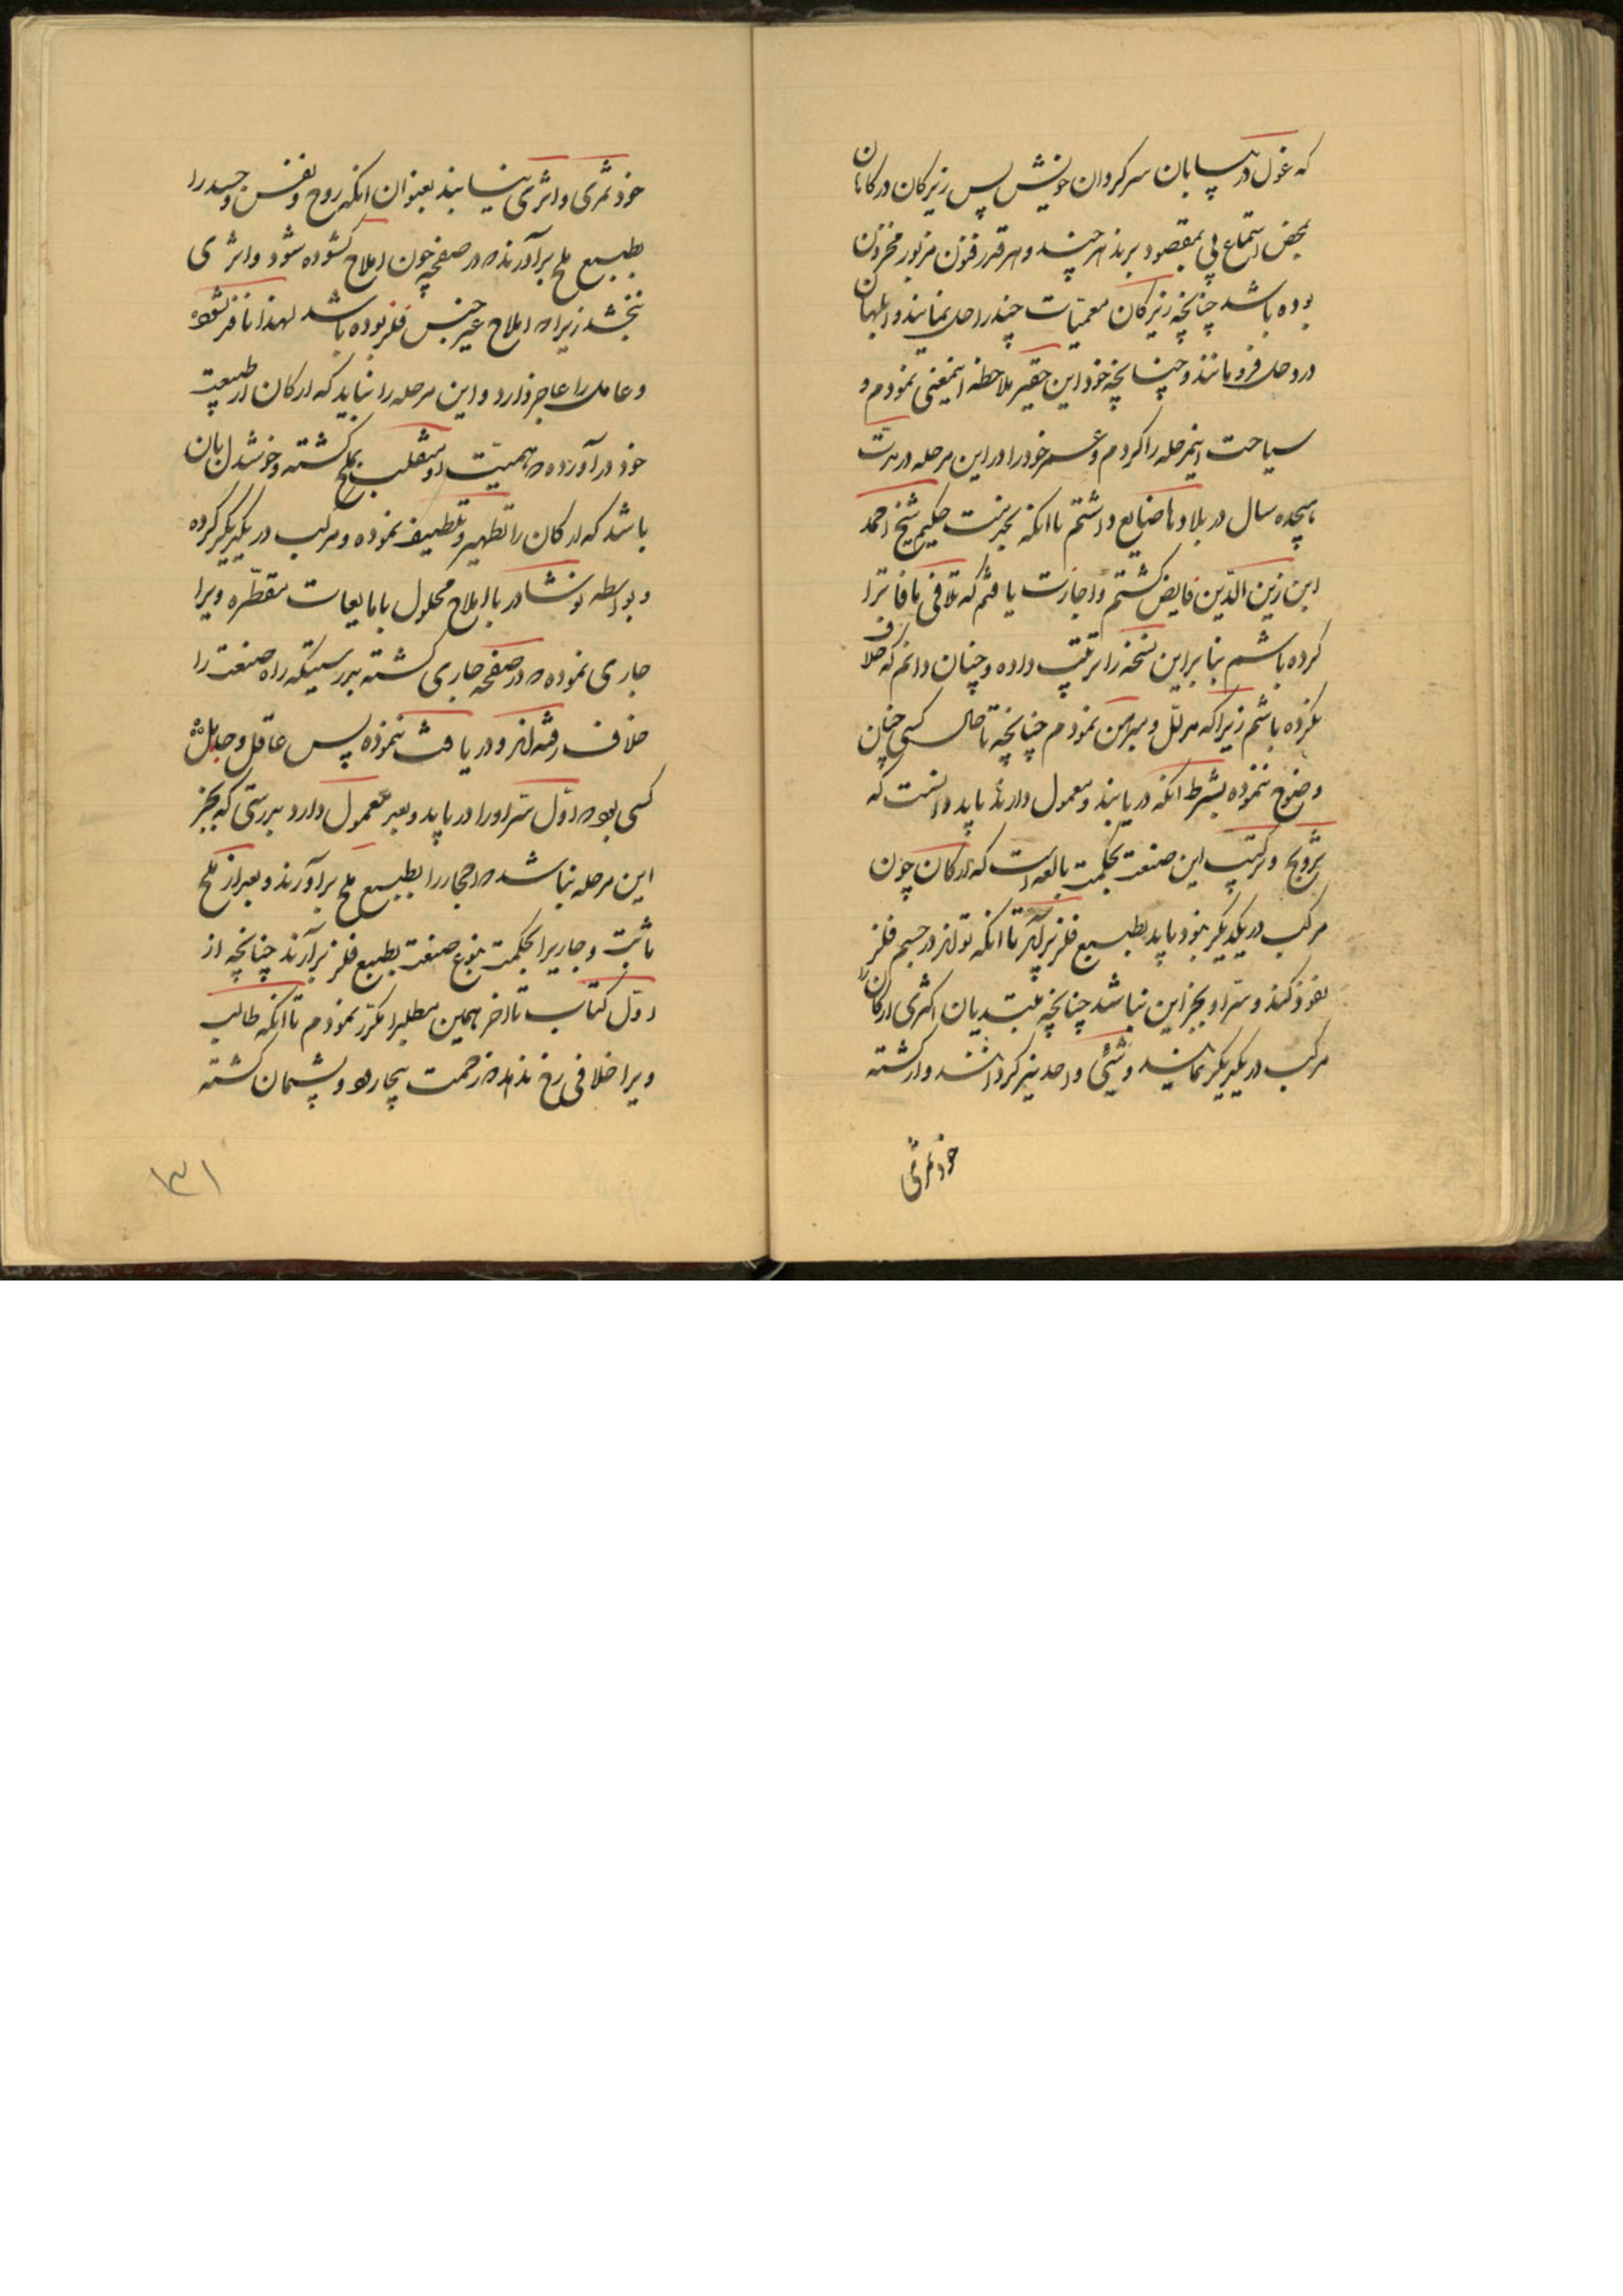 که غول در بیابان سرکردان خویش پس زیرکان در کانان
بمحض استماع پی بمقصود برند هر چند و هر قدر فنون مزبور مخزون
بوده باشد چنانچه زیرکان معمیات چند را حل نمایند و ابلهان
در وحل فرو مانند و چنانچه خود این حقیر ملاحظه اینمعنی نمودم و
سیاحت اینمرحله را کردم و عمر خود را در این مرحله در مدت
هیجده سال در بلاد ها ضایع داشتم تا انکه بخدمت حکیم شیخ احمد
ابن زین الدین فایض کشتم و اجازت یافتم که تلافی مافات را
کرده باشم بنا براین نسخه را ترتیب داده و چنان دانم که خلاف
نکرده باشم زیرا که مدلل و مبرهن نمودم چنانچه تا حال کسی چنان
وضوح ننموده بشرط انکه دریابند و معمول دارند باید دانست که
تزویج و ترکیب این صنعت بحکمت بالغه است که ارکان چون
مرکب در یکدیکر بود باید بطبیع فلز برآید تا انکه تواند در جسم فلز
نفوذ کند و سر او بجز این نباشد چنانچه مبتدیان اکثری ارکان را
مرکب در یکدیکر نمایند و شیئی واحد نیز کردانند و از کشته
خود ثمری
خود ثمری و اثری نیابند بعنوان انکه روح و نفس و جسد را
بطبیع ملح برآورند که در صفحه چون املاح کشوده شود و اثری
نبخشد زیرا که املاح غیر جنس فلز بوده باشد لهذا نافذ نشود
و عامل را عاجز دارد و این مرحله را نباید که ارکان از طبیعت
خود در آورده که بهمیت او منقلب بملح کشته و خوشدل بان
باشد که ارکان را تطهیر و تلطیف نموده و مرکب در یکدیکر کرده
و بواسطه نوشادر با املاح محلول با مایعات مقطره ویرا
جاری نموده که در صفحه جاری کشته بدرستیکه راه صنعت را
خلاف رفته اند و دریافت ننموده پس عاقل و
کسی بود که اول سر او را دریابد و بعد معمول دارد بدرستی که بجز
این مرحله نباشد که احجار را بطبیع ملح براورند و بعد از ملح
ثابت و جاریرا بحکمت بنوع صنعت بطبیع فلز برآرند چنانچه از
اول کتاب تا اخر همین مطلبرا مکرر نمودم تا انکه طالب
ویرا خلافی رخ ندهد که زحمت بیجا برد و پشیمان کشته
۱۳۱